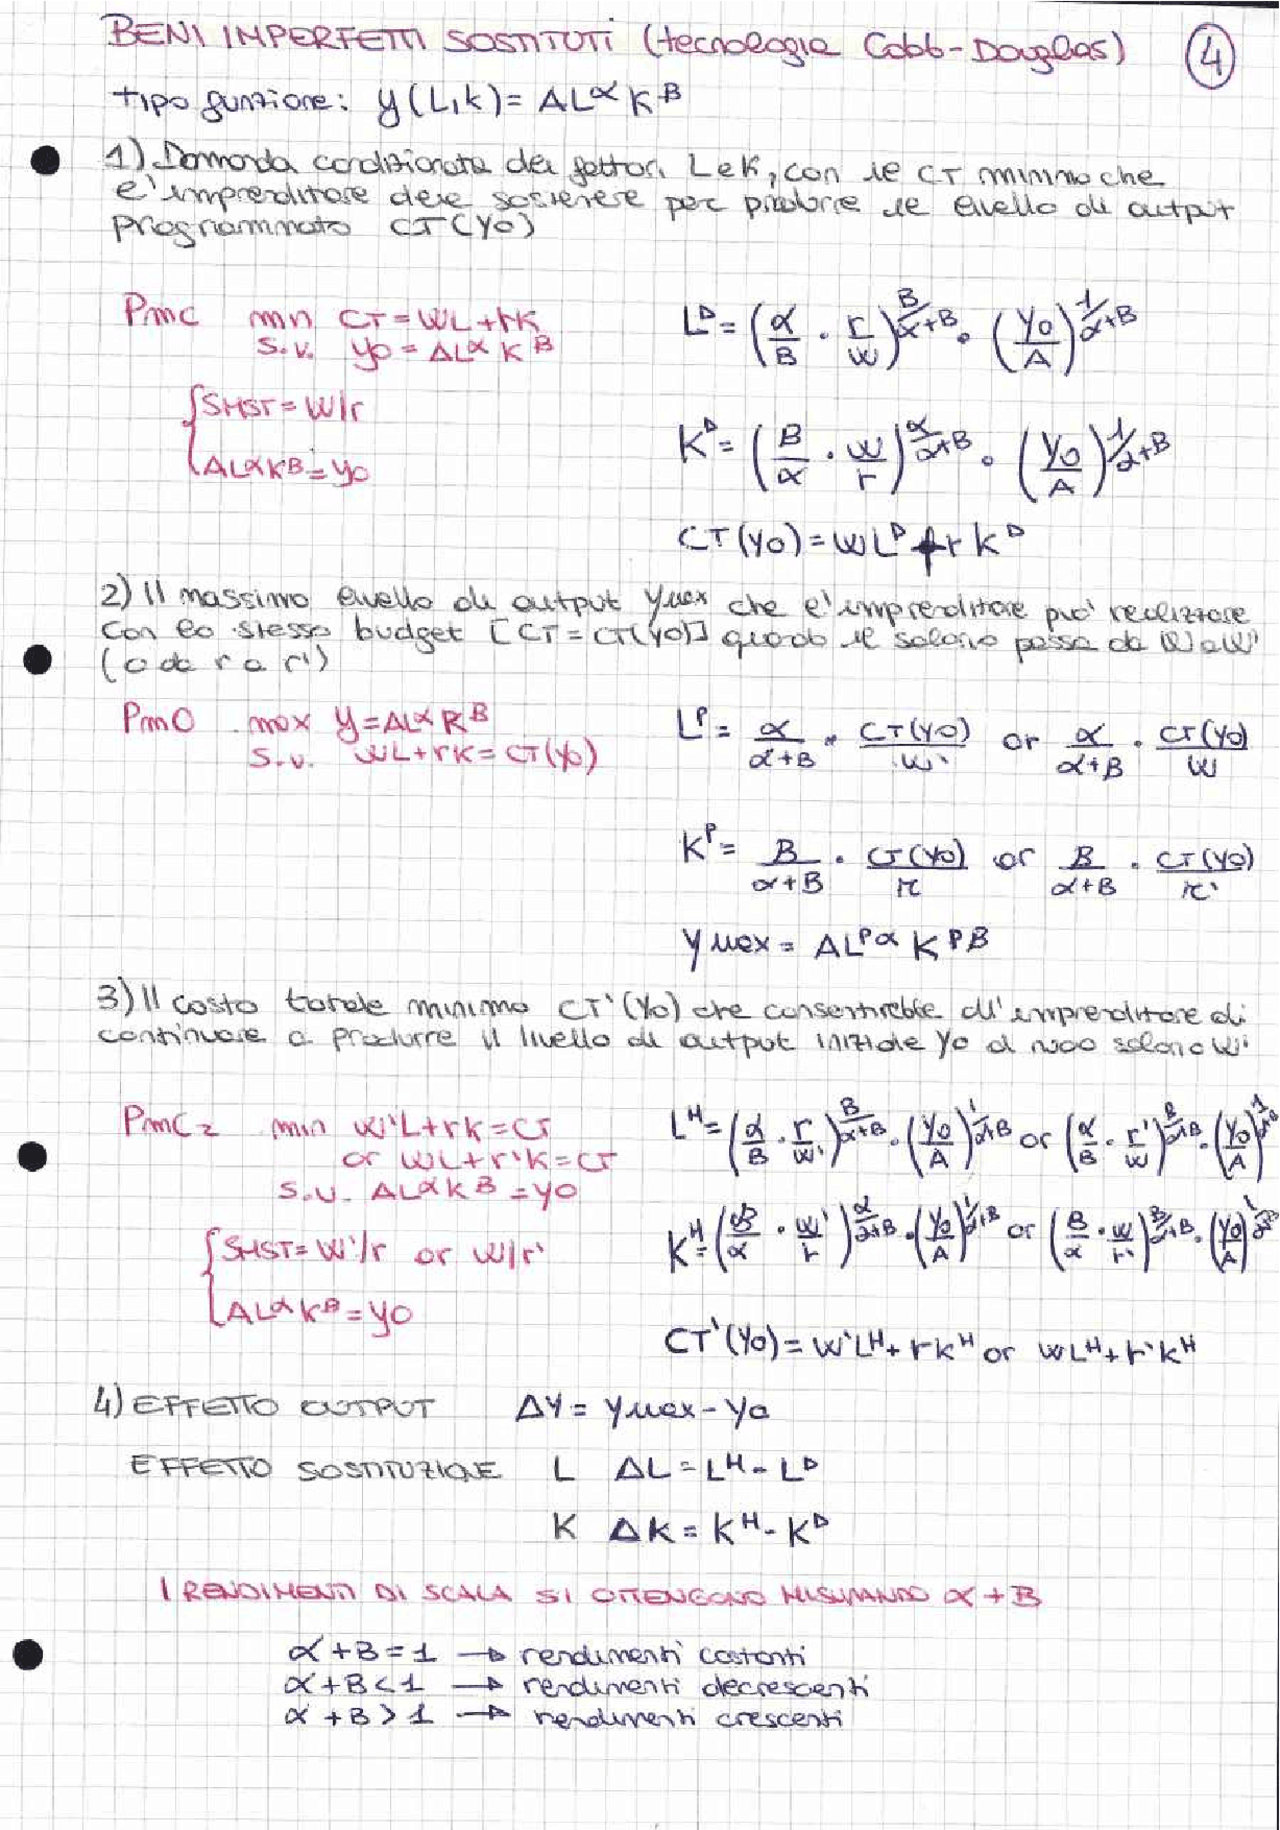 BENI IMPERFETTI SOSTITUTI (tecnologia Cobb-Douglas) 4
tipo funzione: y(L,k) = AL^α K^B
1) Domanda condizionata dei fattori L e K, con il CT minimo che
l'imprenditore deve sostenere per produrre il livello di output
programmato CT(Y0)
Pmc min CT = WL + rK
s.v. y0 = AL^α K^B
L^D = (α/B · r/w)^(B/α+B) · (y0/A)^(1/α+B)
{SMST = W/r
AL^αK^B = y0
K^D = (B/α · w/r)^(α/α+B) · (y0/A)^(1/α+B)
CT(y0) = WL^D + rK^D
2) Il massimo livello di output Ymax che l'imprenditore può realizzare
con lo stesso budget [CT = CT(Y0)] quando il salario passa da W a W'
(o da r a r')
PmO max y = AL^α K^B
s.v. WL + rK = CT(y0)
L^P = α/α+B · CT(Y0)/w' or α/α+B · CT(y0)/w
K^P = B/α+B · CT(Y0)/r or B/α+B · CT(Y0)/r'
Ymax = AL^Pα K^PB
3) Il costo totale minimo CT'(Y0) che consentirebbe all'imprenditore di
continuare a produrre il livello di output iniziale Yo al nuovo salario W'
PmC2 min W'L + rK = CT
or WL + r'K = CT
s.v. AL^αK^B = y0
L^H = (α/B · r/w')^(B/α+B) · (y0/A)^(1/α+B) or (α/B · r'/w)^(B/α+B) · (y0/A)^(1/α+B)
{SMST = W'/r or W/r'
AL^αK^B = y0
K^H = (B/α · w'/r)^(α/α+B) · (y0/A)^(1/α+B) or (B/α · w/r')^(B/α+B) · (y0/A)^(1/α+B)
CT'(y0) = W'L^H + rK^H or WL^H + r'K^H
4) EFFETTO OUTPUT ΔY = Ymax - Yo
EFFETTO SOSTITUZIONE L ΔL = L^H - L^D
K ΔK = K^H - K^D
I RENDIMENTI DI SCALA SI OTTENGONO MISURANDO α + B
α + B = 1 → rendimenti costanti
α + B < 1 → rendimenti decrescenti
α + B > 1 → rendimenti crescenti